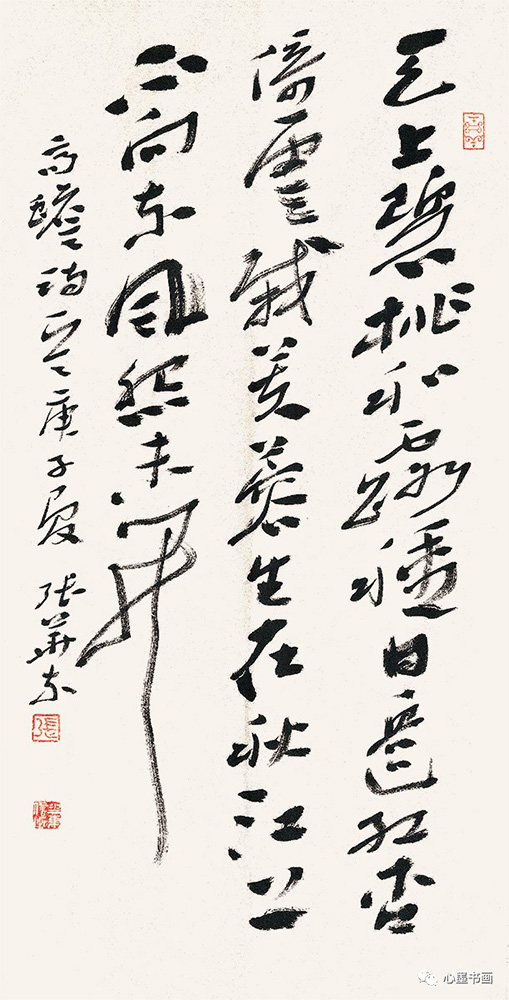 天上碧桃和露種日邊紅杏
倚雲栽芙蓉生在秋江上
不向东風怨未开
高蟾诗 庚子夏 张華东
張
心墨书画